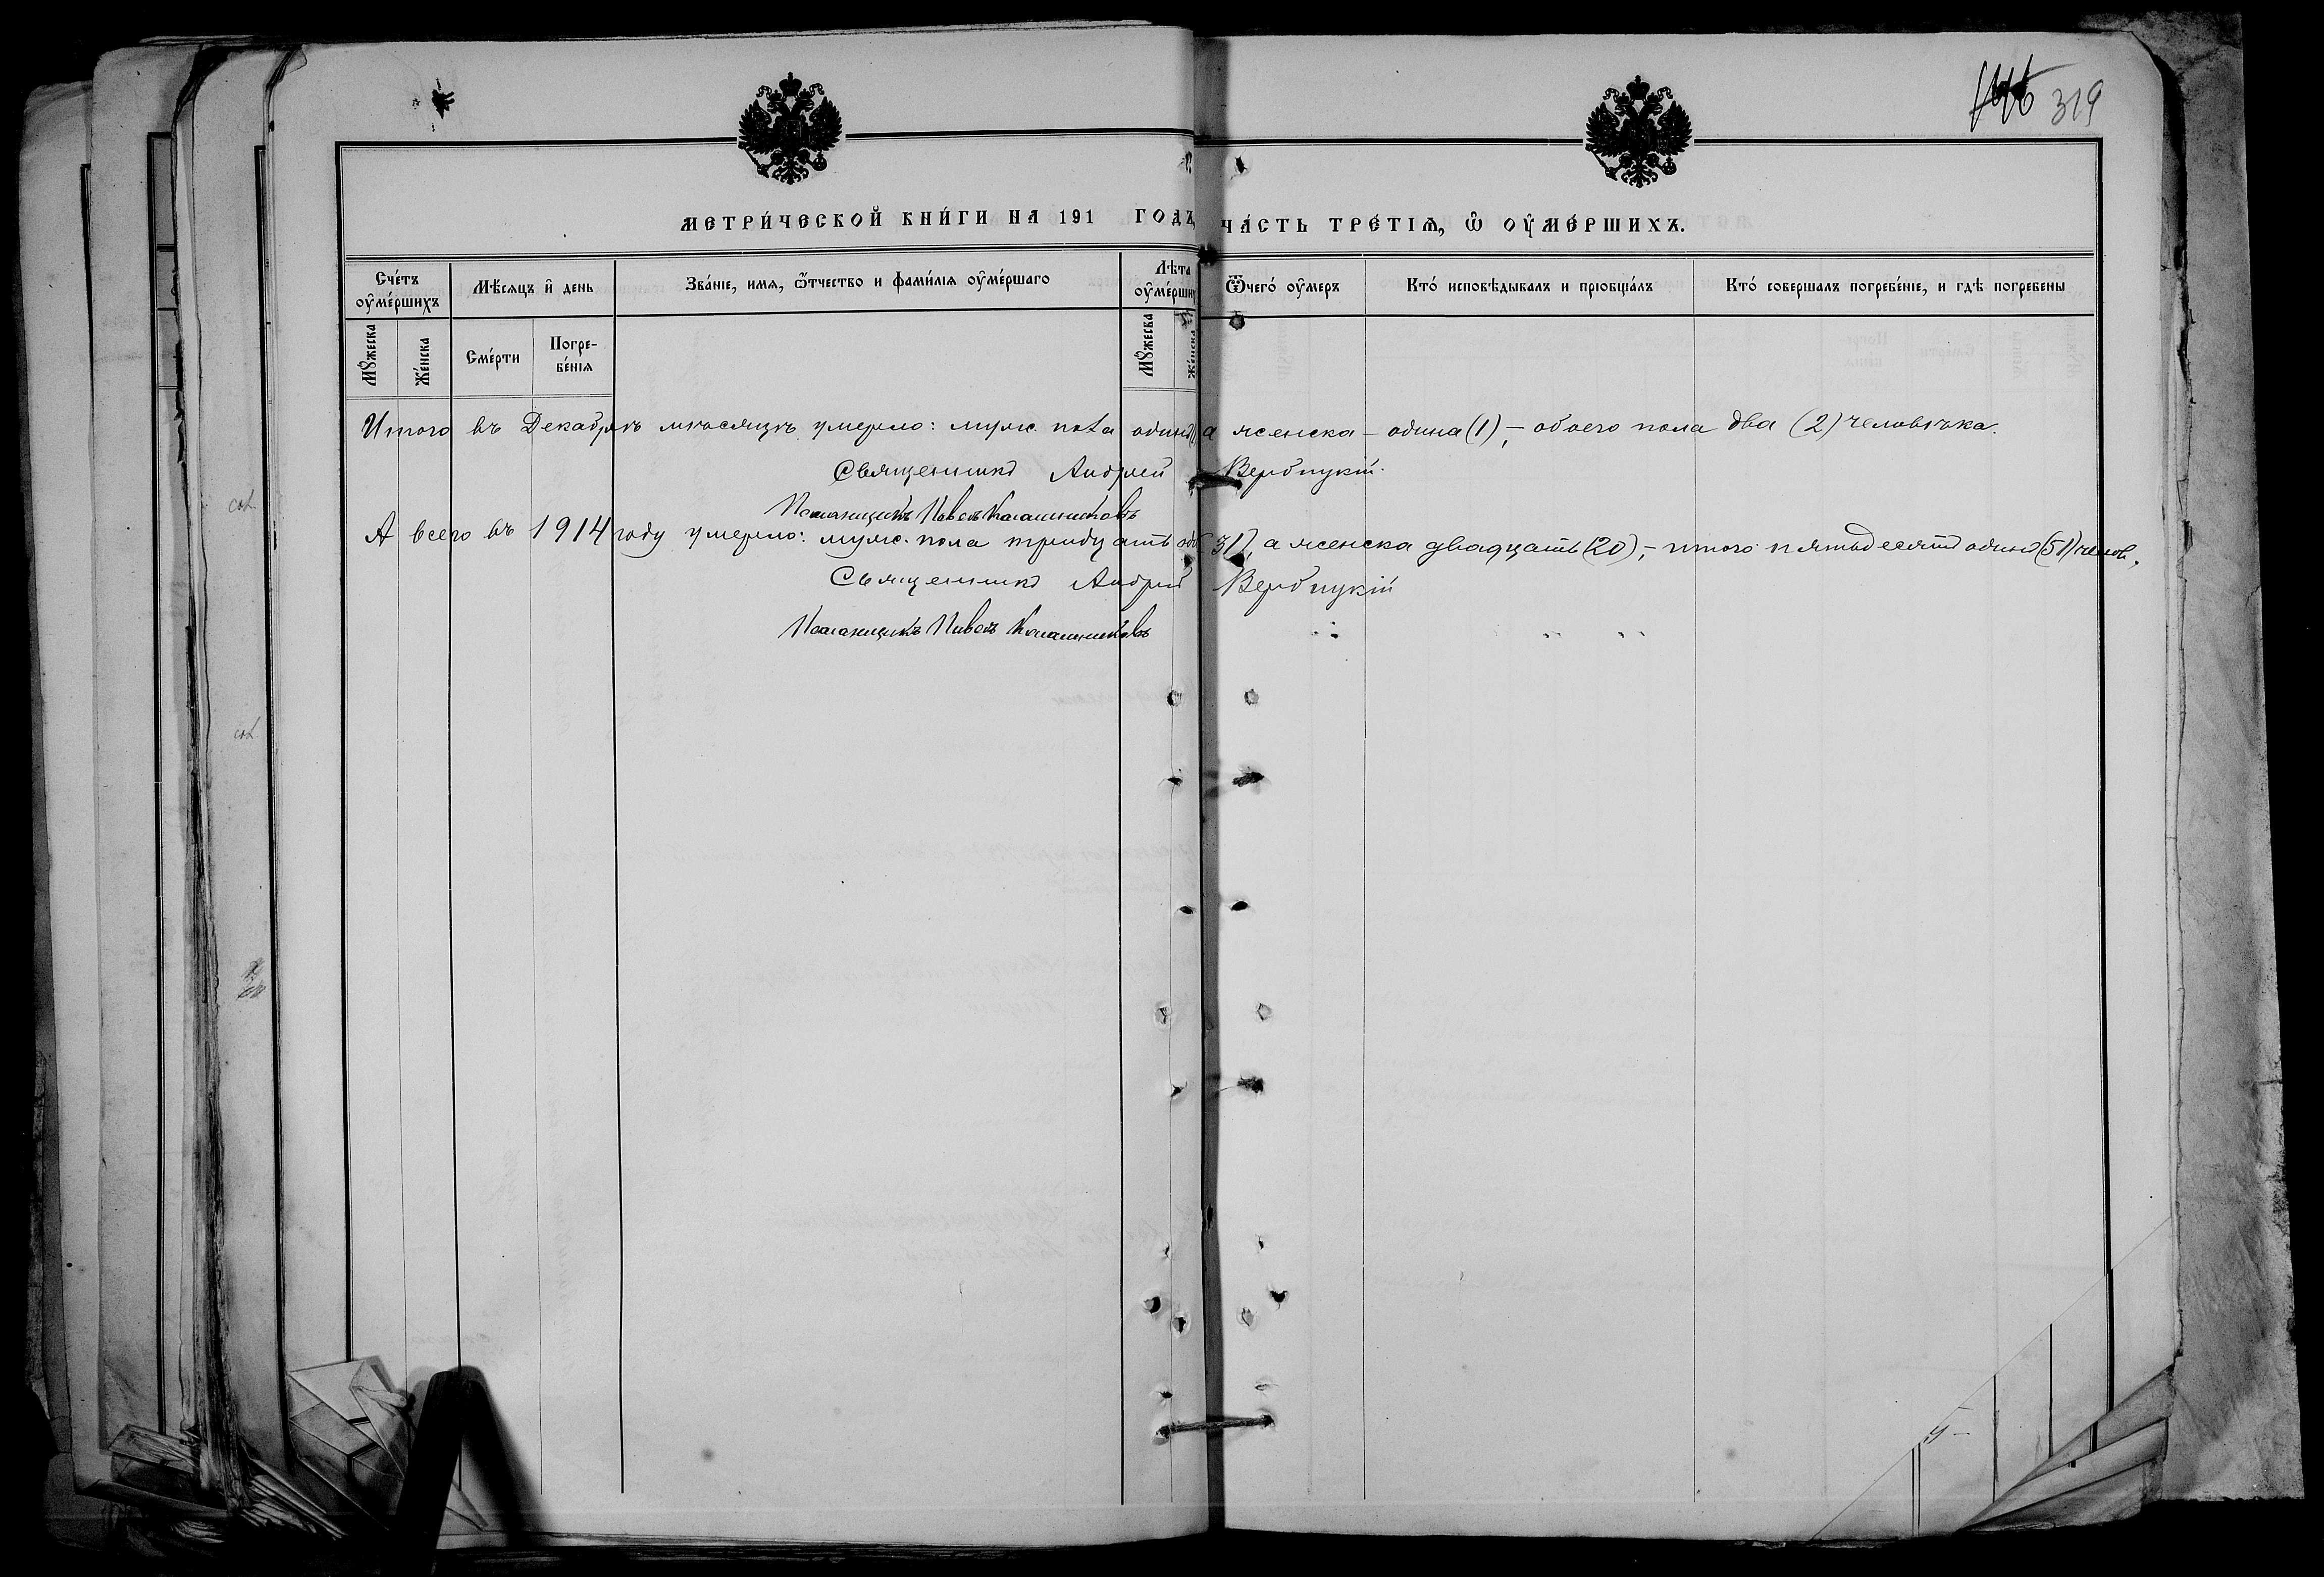 319
МЕТРИ́ЧЕСКОЙ КНИ́ГИ НА 191 ГОДЪ, ЧА́СТЬ ТРЕ́ТІѦ, Ѡ ОУМЕ́РШИХЪ.
Сче́тъ оуме́ршихъ
Мѣсяцъ и день
Зва́ніе, имя, ѿтчество и фами́лія оуме́ршаго
Лѣта оуме́рших
Ѿчего́ оумеръ
Кто́ исповѣдывалъ и пріобща́лъ
Кто́ совершалъ погребе́ніе, и гдѣ погребены
Мꙋжеска
Же́нска
Сме́рти
Погре-
бе́нія
Мꙋжеска
Же́нска
Итого въ Декабрѣ мѣсяцѣ умерло: муж. пола одинъ(1) а женска – одна (1), – обоего пола два (2) человѣка.
Священникъ Андрей Вербицкій.
Псаломщикъ Павелъ
А всего въ 1914 году умерло: муж. пола тридцать 31), а женска двадцать (20), – итого пятьдесятъ одинъ (51) челов.
Священникъ Андрей Вербицкій
Псаломщикъ Павелъ